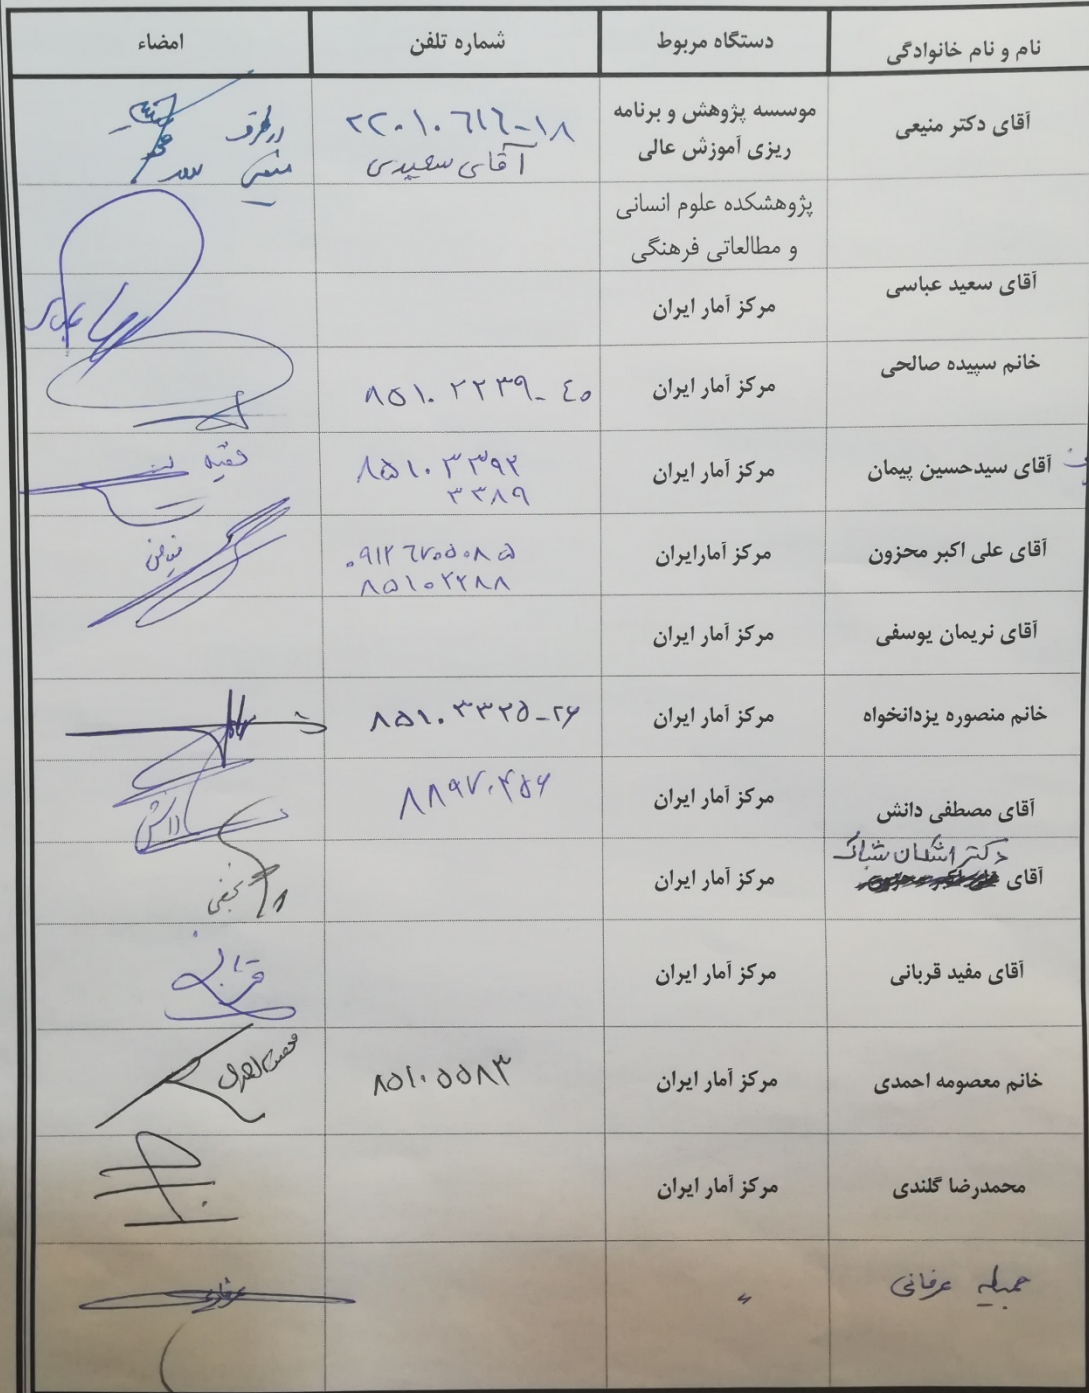 نام و نام خانوادگی دستگاه مربوط شماره تلفن امضاء
آقای دکتر منیعی موسسه پژوهش و برنامه ریزی آموزش عالی ۲۲۰۱۰۶۱۶-۱۸ آقای سعیدی از طرف
پژوهشکده علوم انسانی و مطالعاتی فرهنگی
آقای سعید عباسی مرکز آمار ایران
خانم سپیده صالحی مرکز آمار ایران ۸۵۱۰۲۲۳۹-۴۰
آقای سیدحسین پیمان مرکز آمار ایران ۸۵۱۰۳۳۹۲
۳۳۸۹
آقای علی اکبر محزون مرکز آمارایران ۰۹۱۲۶۷۰۵۰۸۵
۸۵۱۰۲۲۸۸
آقای نریمان یوسفی مرکز آمار ایران
خانم منصوره یزدانخواه مرکز آمار ایران ۸۵۱۰۳۳۲۵-۲۶
آقای مصطفی دانش مرکز آمار ایران ۸۸۹۷۰۴۵۶ دانش
دکتر اشکان شباک
آقای مرکز آمار ایران نجفی
آقای مفید قربانی مرکز آمار ایران قربانی
خانم معصومه احمدی مرکز آمار ایران ۸۵۱۰۵۵۸۳
محمدرضا گلندی مرکز آمار ایران
جمیله عرفانی 〃 عرفانی